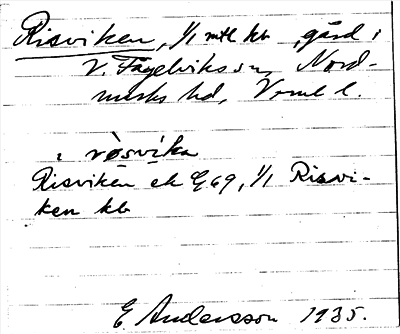 Risviken, 1/1 mtl kb, gård i
V. Fågelviks sn, Nord-
marks hd, Vrml l.
i røsvika
Risviken ek G69, 1/1 Risvi-
ken kb
E Andersson 1935.